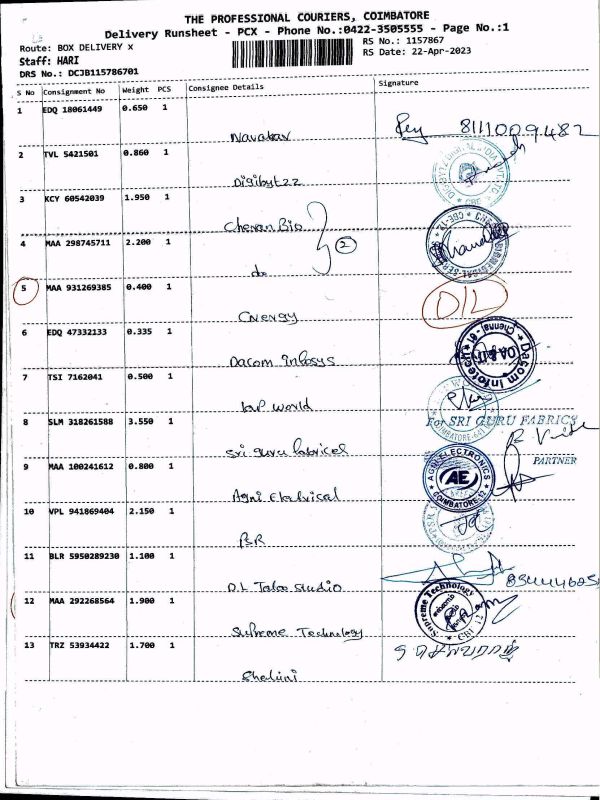 THE PROFESSIONAL COURIERS, COIMBATORE
Delivery Runsheet - PCX - Phone No.:0422-3505555 - Page No.:1
Route: BOX DELIVERY x
RS No.: 1157867
Staff: HARI
RS Date: 22-Apr-2023
DRS No.: DCJB115786701
S No Consignment No Weight PCS Consignee Details Signature
1 EDQ 18061449 0.650 1
8111009482
2 TVL 5421501 0.860 1
Digibytzz
3 KCY 60542039 1.950 1
Chenan Bio
2
4 MAA 298745711 2.200 1
do
5 MAA 931269385 0.400 1
Cnergy
6 EDQ 47332133 0.335 1
Dacom Infosys
Dacom Infotech
Chennai
7 TSI 7162041 0.500 1
world
8 SLM 318261588 3.550 1
For SRI GURU FABRICS
Sri Guru
PARTNER
9 MAA 100241612 0.800 1
Agni
AGNI ELECTRONICS
AE
COIMBATORE-12
10 VPL 941869404 2.150 1
PSR
11 BLR 5950289230 1.100 1
D.L. Studio
12 MAA 292268564 1.900 1
Supreme Technology
Supreme Technology
13 TRZ 53934422 1.700 1
Shalini